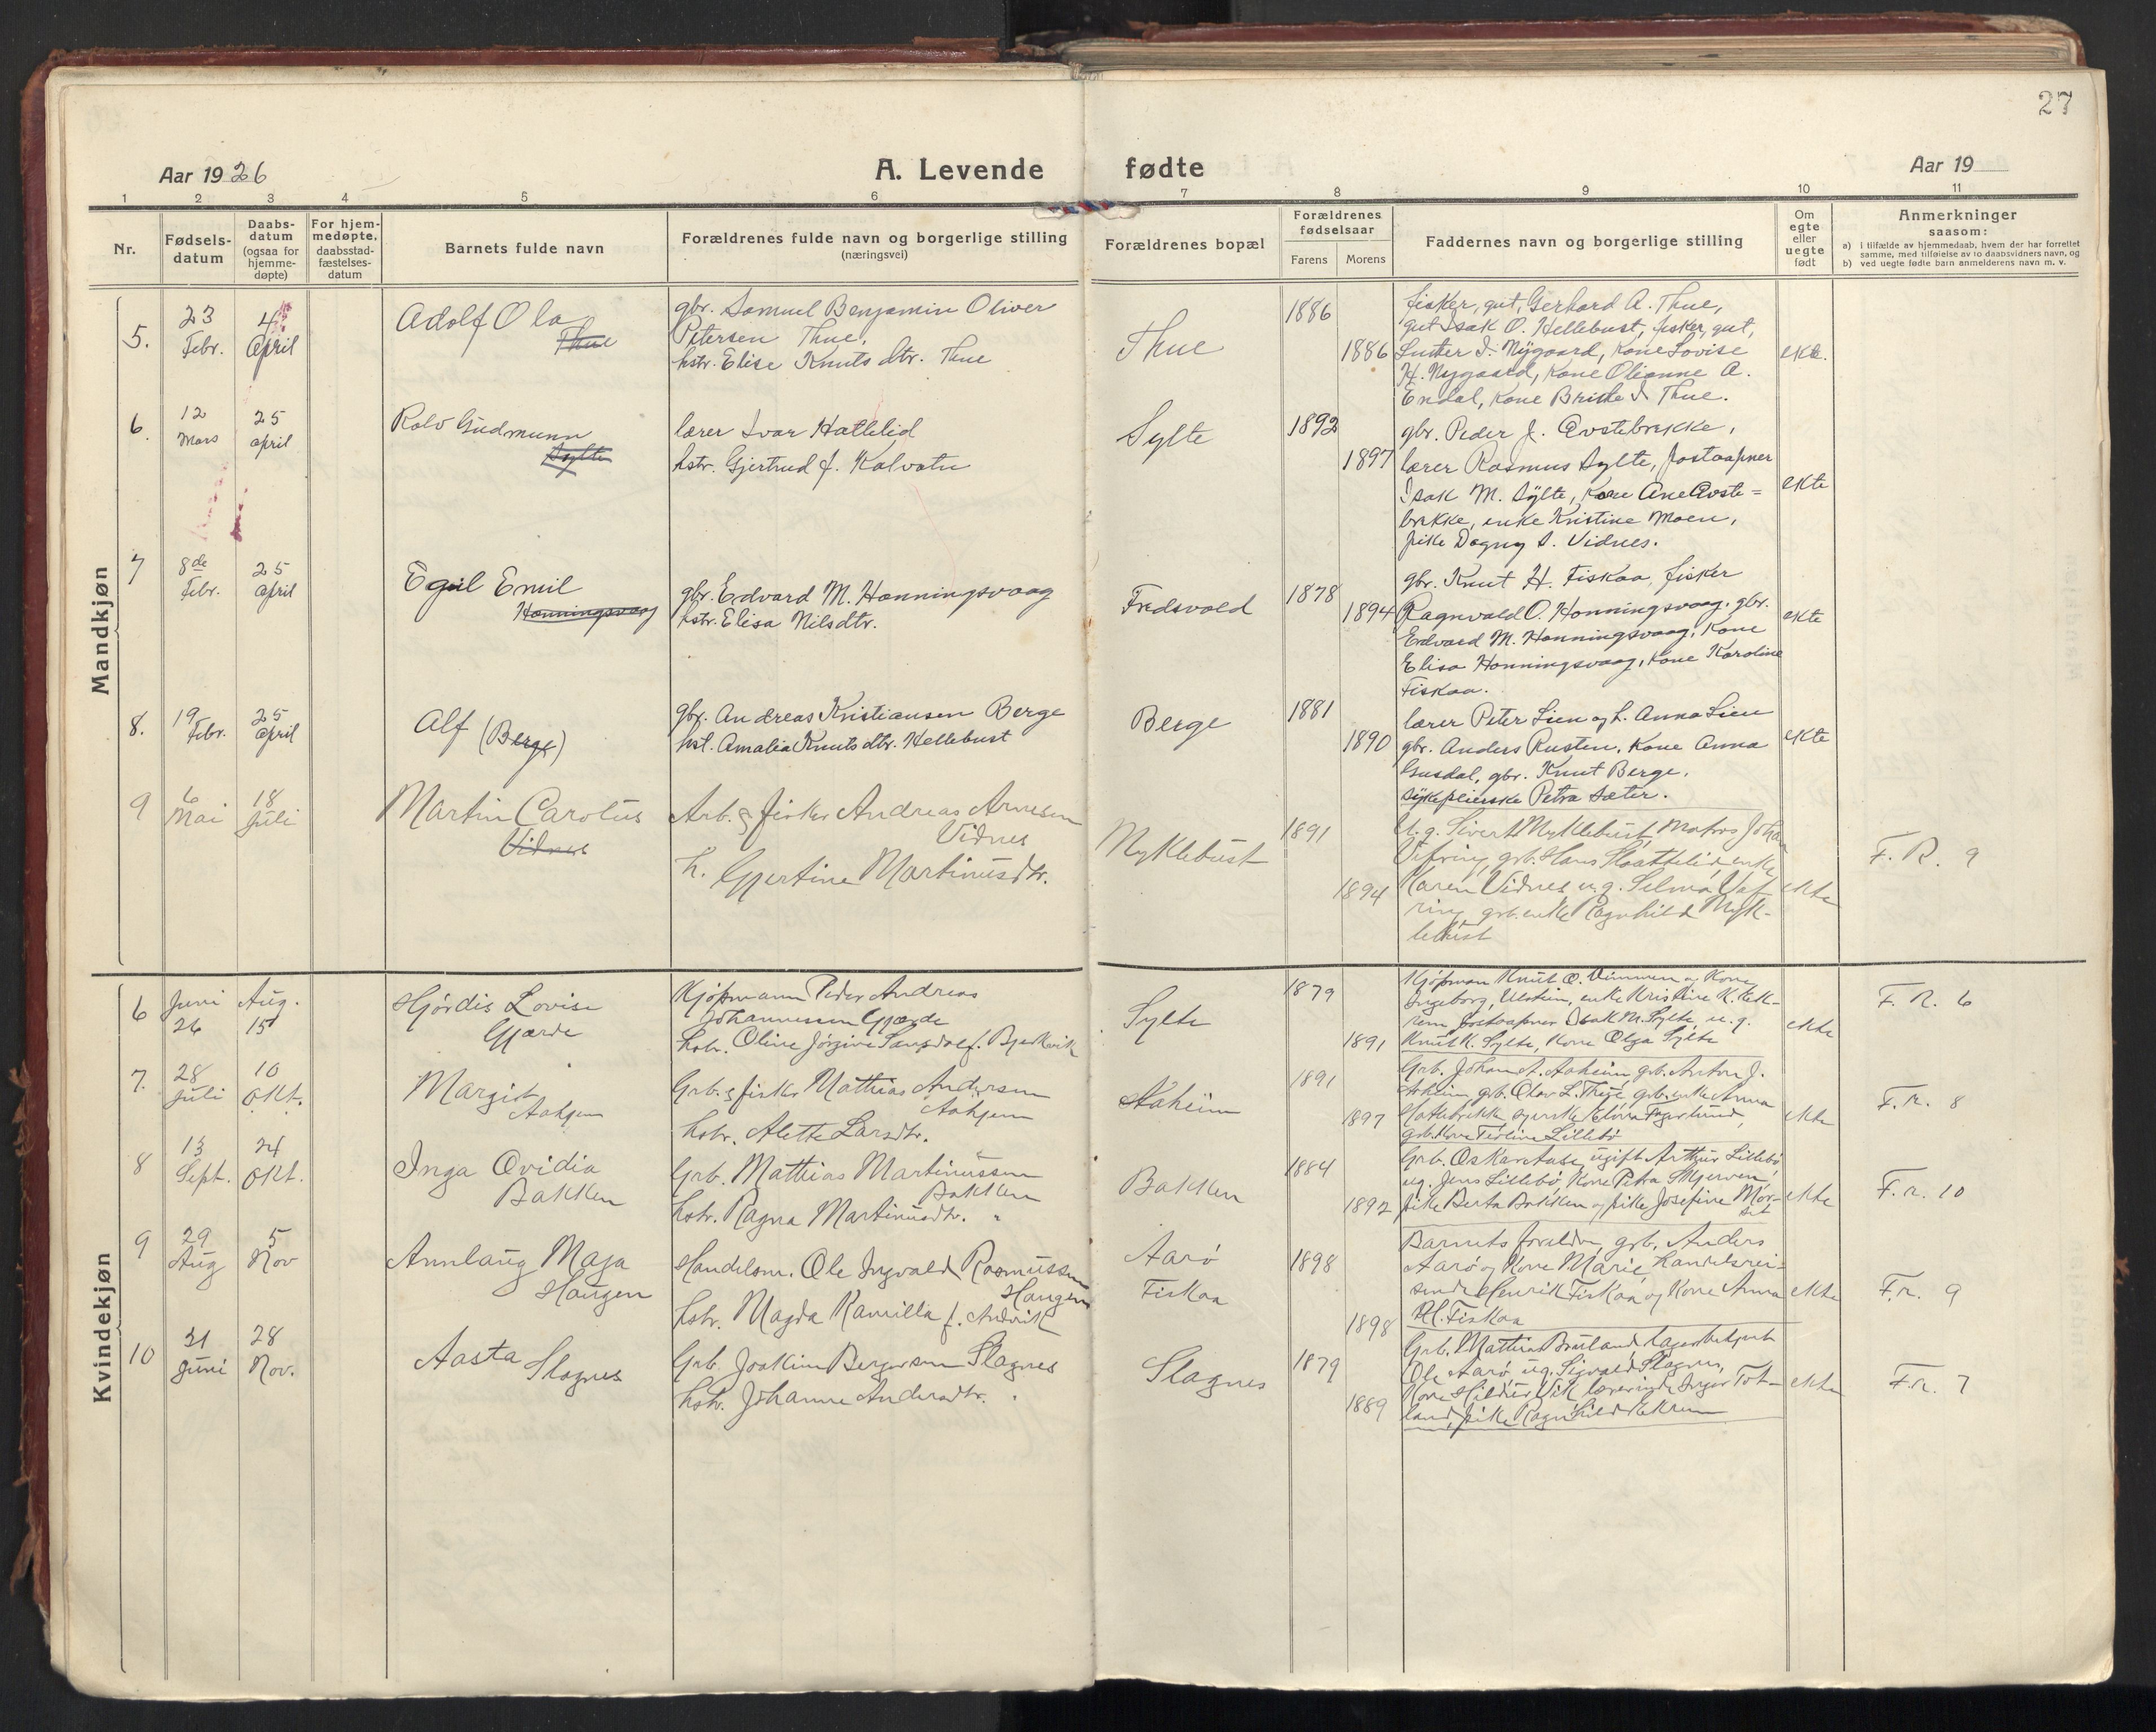 27
Aar 1926
A. Levende fødte
Aar 19
1 2 3 4 5 6 7 8 9 10 11
Nr.
Fødsels-
datum
Daabs-
datum
(ogsaa for
hjemme-
døpte)
For hjem-
medøpte,
daabsstad-
fæstelses-
datum
Barnets fulde navn
Forældrenes fulde navn og borgerlige stilling
(næringsvei)
Forældrenes bopæl
Forældrenes
fødselsaar
Farens Morens
Faddernes navn og borgerlige stilling
Om
egte
eller
uegte
født
Anmerkninger
saasom:
a) i tilfælde av hjemmedaab, hvem der har forrettet
samme, med tilføielse av to daabsvidners navn, og
b) ved uegte fødte barn anmelderens navn m. v.
Mandkjøn
5.
23
Febr.
4.
April
Adolf Ola
Thue
gbr. Samuel Benjamin Oliver
Petersen Thue,
hstr. Elise Knuts dtr. Thue
Thue
1886
1886
fisker, gut, Gerhard A. Thue,
gut Isak O. Hellebust, fisker, gut,
J. Nygaard, Kone Lovise
H. Nygaard, Kone Olianne A.
Endal, Kone Thue.
ekte.
6.
12
Mars
25
april
Rolv Gudmunn
Sylte
lærer Ivar Hattelid
hstr. Gjertrud f. Kalvatn
Sylte
1892
1897
gbr. Peder J. Avstebrekke,
lærer Rasmus Sylte, postaapner
Isak M. Sylte, Kone Ane Avste=
brekke, enke Kristine Moen,
pike Dagny S. Vidnes.
ekte
7
8de
Febr.
25
april
Egil Emil
Honningsvaag
gbr. Edvard M. Honningsvaag
hstr. Elisa Nilsdtr.
Fredsvold
1878
1894
gbr. Knut H. Fiskaa, fisker
Ragnvald O. Honningsvaag, gbr.
Edvard M. Honningsvaag, Kone
Elisa Honningsvaag, Kone Karoline
Fiskaa.
ekte
8.
19
Febr.
25
april
Alf (Berge)
gbr. Andreas Kristiansen Berge
hst. Amalia Knuts dtr. Hellebust
Berge
1881
1890
lærer Peter Lien og h. Anna Lien
gbr. Anders Rusten, Kone Anna
Gusdal, gbr. Knut Berge,
sykepleierske Petra Sæter.
ekte
9
6
Mai
18
Juli
Martin Carolus
Vidnes
Arb. & fisker Andreas Arnesen
Vidnes
h. Gjertine Martinusdtr.
Myklebust
1891
1894
U.g. Sivert Myklebust, Johan
Vefring, grb. Hans Slaattelid, enke
Karen Vidnes u.g. Selma Vef
ring, grb.enke Ragnhild Myk-
lebust
ekte
F. R. 9
Kvindekjøn
6
Juni
26
Aug.
15
Hjørdis Lovise
Gjærde
Kjøpmann Peder Andreas
Johannessen Gjærde
hstr. Oline Jørgine f. Bjerkvik
Sylte
1879
1891
Kjøpman Knut O. og Kone
Ingeborg, Ulstein, enke Kristine K. Ek-
rem postaapner Isak M. Sylte u.g.
Knut K. Sylte, Kone Olga Sylte
ekte
F. R. 6
7.
28
Juli
10
Okt.
Margit
Aahjem
Grb. & fisker Mathias Andersen
Aahjem
hstr. Alette Larsdtr.
Aaheim
1891
1897
Grb. Johan A. Aaheim grb. Anton J.
Aaheim grb. Olav L. grb. enke Anna
grb. Kone Lillebø
ekte
F. R. 8
8
13
Sept.
24
Okt.
Inga Ovidia
Bakken
Grb. Mathias Martinussen
Bakken
hstr. Ragna Martinusdtr. "
Bakken
1884
1892
Grb. Oskar ugift Arthur Lillebø
ug. Jens Lillebø, Kone Petra Skjerven,
pike Berta Bakken og pike Josefine Mor-
set
ekte
F. R. 10
9
29
Aug
5
Nov
Annlaug Maja
Haugen
Handelsm. Ole Ingvald Rasmussen
Haugen
hstr. Magda Kamilla f. Andvik
Aarø
Fiskaa
1898
1898
Barnets foreldre, grb. Anders
Aarø og Kone Marie, handelsrei-
sende Henrik Fiskaa og Kone Anna
H. Fiskaa
ekte
F. R. 9
10
21
Juni
28
Nov.
Aasta
Slagnes
Grb. Joakim Bergersen Slagnes
hstr. Johanne Andersdtr. "
Slagnes
1879
1889
Grb. Mathias lagerbetjent
Ole Aarø, ug. Sigvald Slagnes,
Kone Hildur Vik lærerinde Inger Tot-
land, pike Ragnhild Ekrem
ekte
F. R. 7